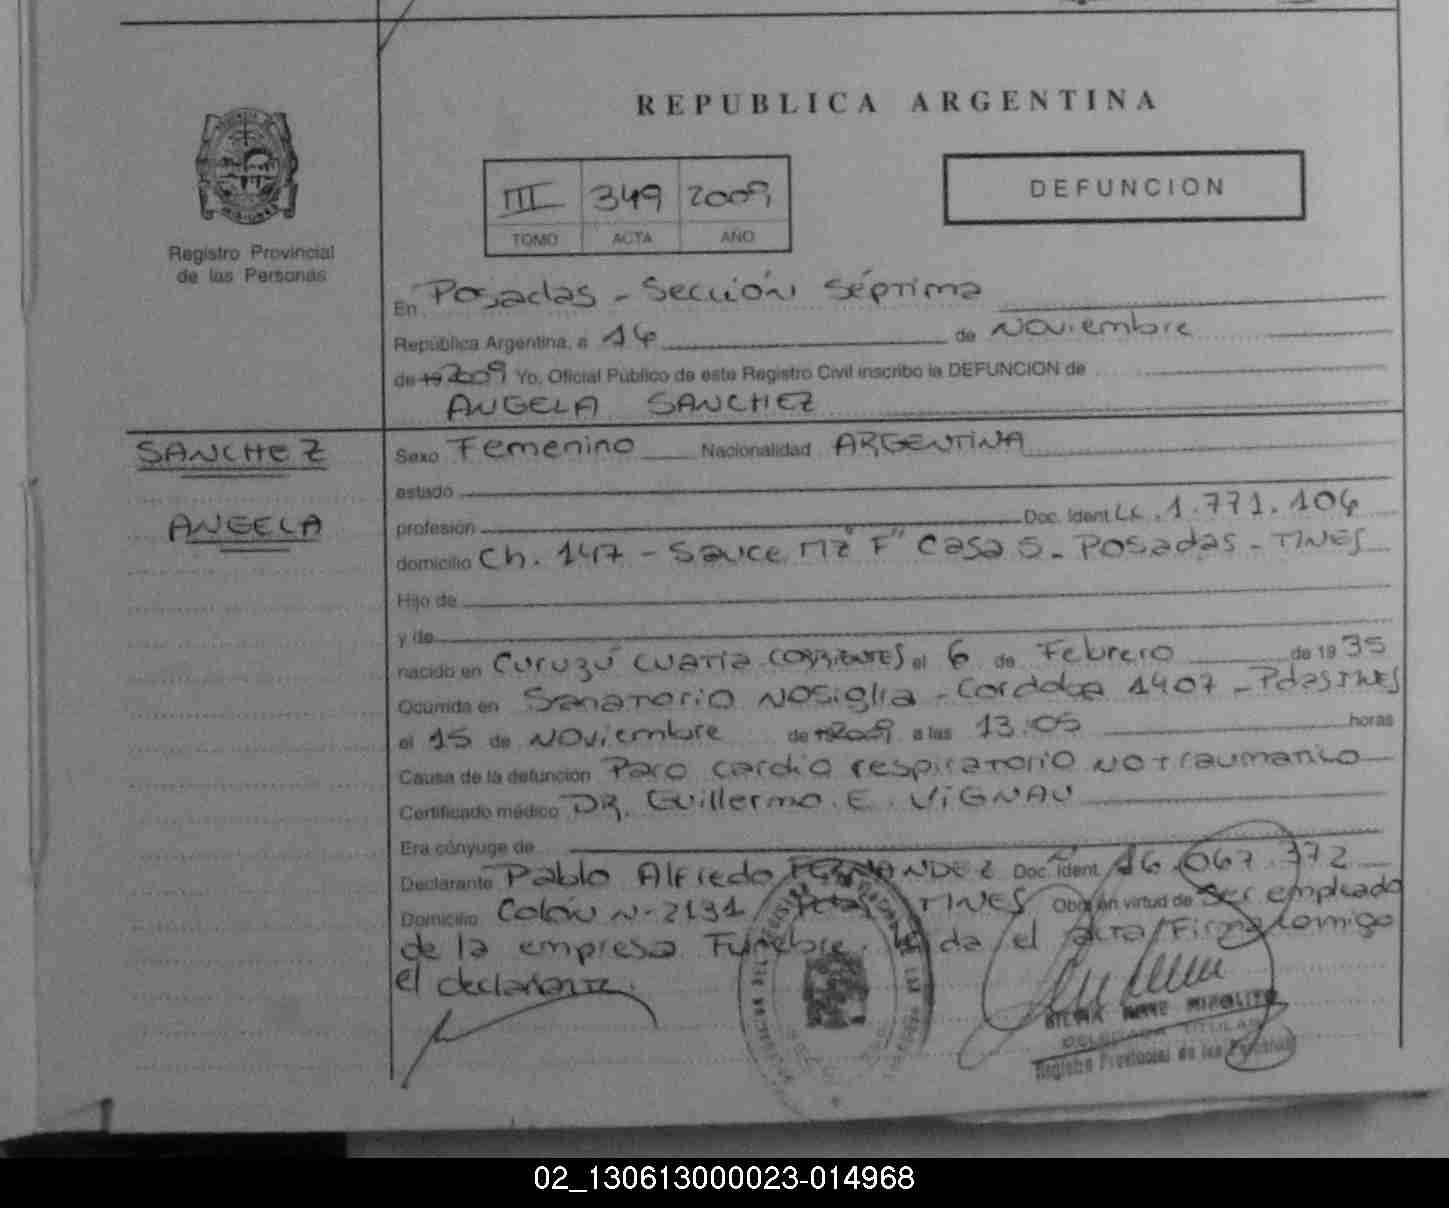 REPUBLICA ARGENTINA
III 349 2009
TOMO ACTA AÑO
DEFUNCION
MISIONES
Registro Provincial
de las Personas
En Posadas - Sección Séptima
República Argentina, a 16 de Noviembre
de 19 2009 Yo, Oficial Público de este Registro Civil inscribo la DEFUNCION de
ANGELA SANCHEZ
SANCHEZ
ANGELA
Sexo Femenino Nacionalidad ARGENTINA
estado
profesión Doc. Ident L.C. 1.771.106
domicilio Ch. 147 - Sauce Mz "F" Casa 5 - Posadas - MNES
Hijo de
y de
nacido en Curuzú Cuatia CORRIENTES el 6 de Febrero de 19 35
Ocurrida en Sanatorio Nosiglia - Cordoba 1407 - Pdas MNES
el 15 de Noviembre de 19 2009 a las 13:05 horas
Causa de la defunción Paro cardio respiratorio no traumatico
Certificado médico DR. Guillermo. E. VIGNAU
Era cónyuge de
Declarante Pablo Alfredo FERNANDEZ Doc. Ident 16.067.372
Domicilio Colón N- 2191 Pdas MNES Obra en virtud de Ser empleado
de la empresa Funebre. da el acta Firma conmigo
el declarante.
SILVIA HIPOLITO
DELEGADA TITULAR
Registro Provincial de las Personas
02_130613000023-014968